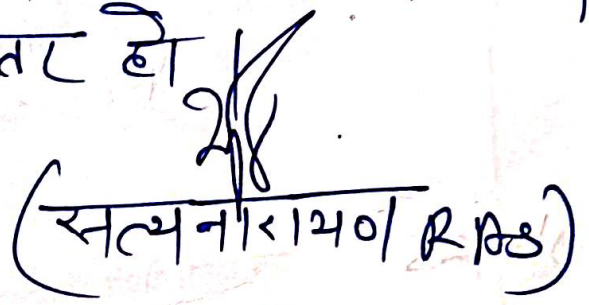 तर हो
(सत्यनारायण RAS)